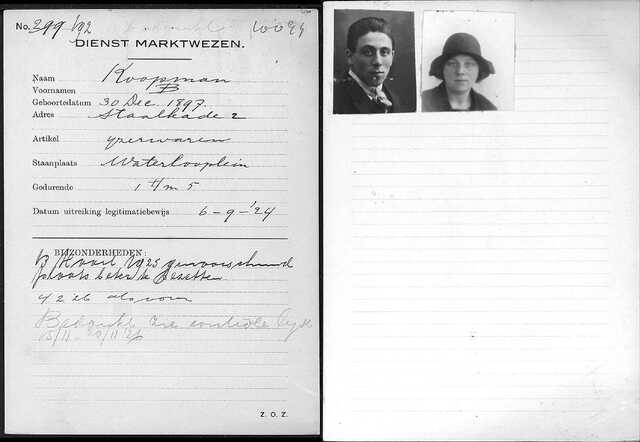 No. 299/192 10099
DIENST MARKTWEZEN.
Naam Koopman
Voornamen B
Geboortedatum 30 Dec. 1897.
Adres Staalkade 2
Artikel yzerwaren
Staanplaats Waterlooplein
Gedurende 1 t/m 5
Datum uitreiking legitimatiebewijs 6-9-'24
BIJZONDERHEDEN:
1925
plaats beter te bezetten
controle
15/11
Z.O.Z.